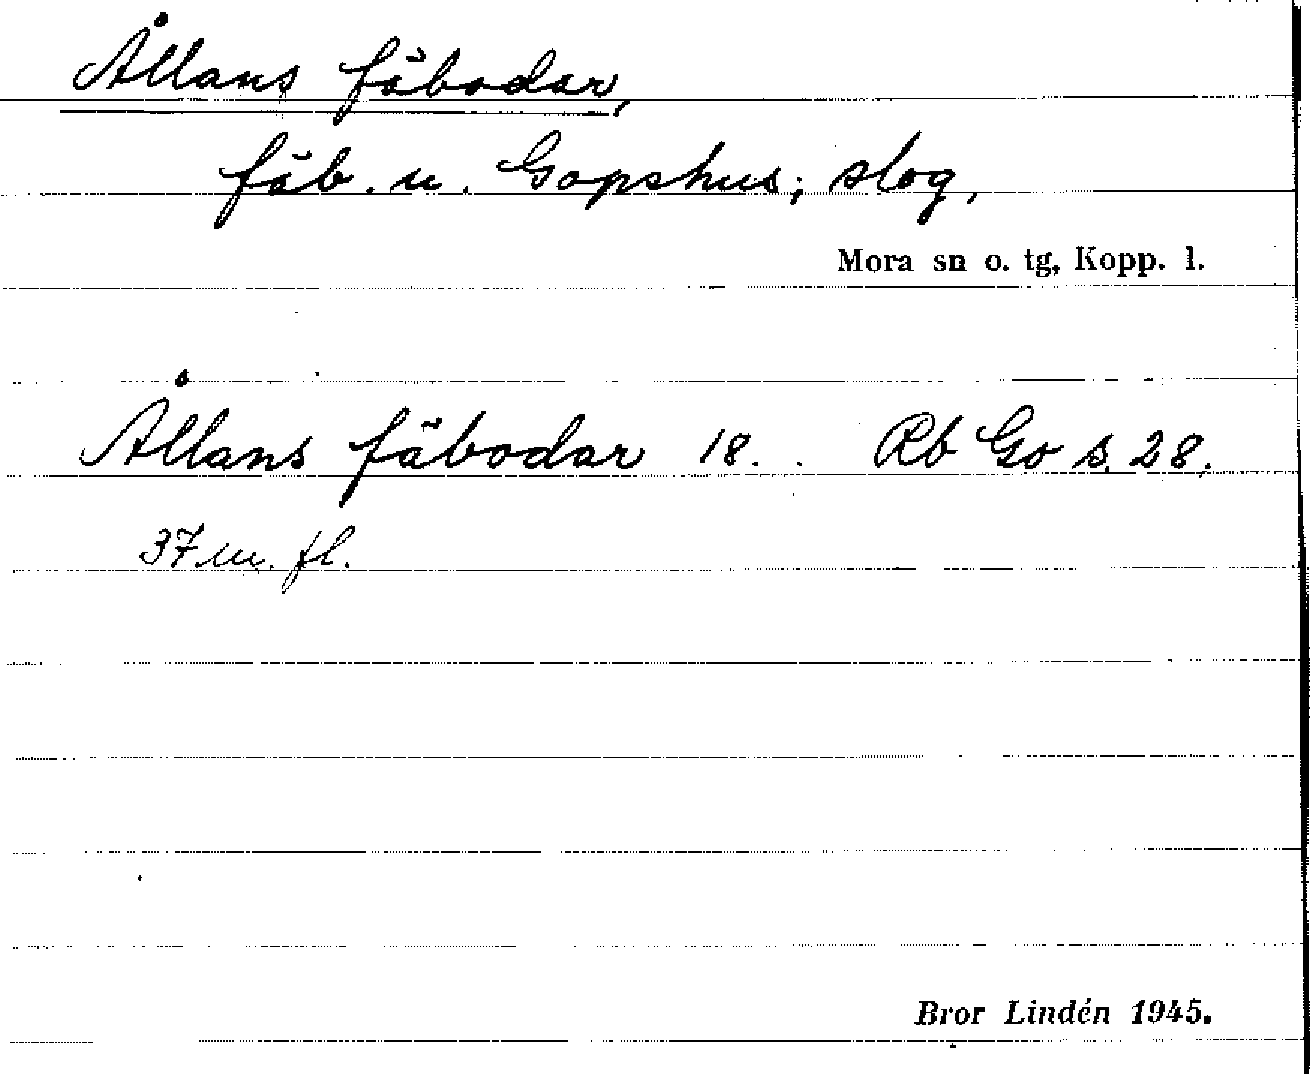 Ållans fäbodar,
fäb. u. Gopshus; slog,
Mora sn o. tg, Kopp. l.
Ållans fäbodar 18. . Rb Go s. 28.
37 m. fl.
Bror Lindén 1945.